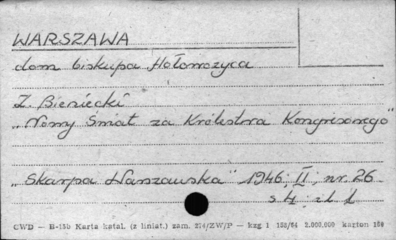 WARSZAWA
dom biskupa Hołowczyca
Z. Bieniecki
"Nowy Świat za Królestwa Kongresowego"
"Skarpa Warszawska" 1946, II, nr. 26
s 4, il. 1
CWD — H-15b Karta katal. (z liniat.) zam. 214/ZW/P — bzg 1 180/84 2.000.000 karton 180